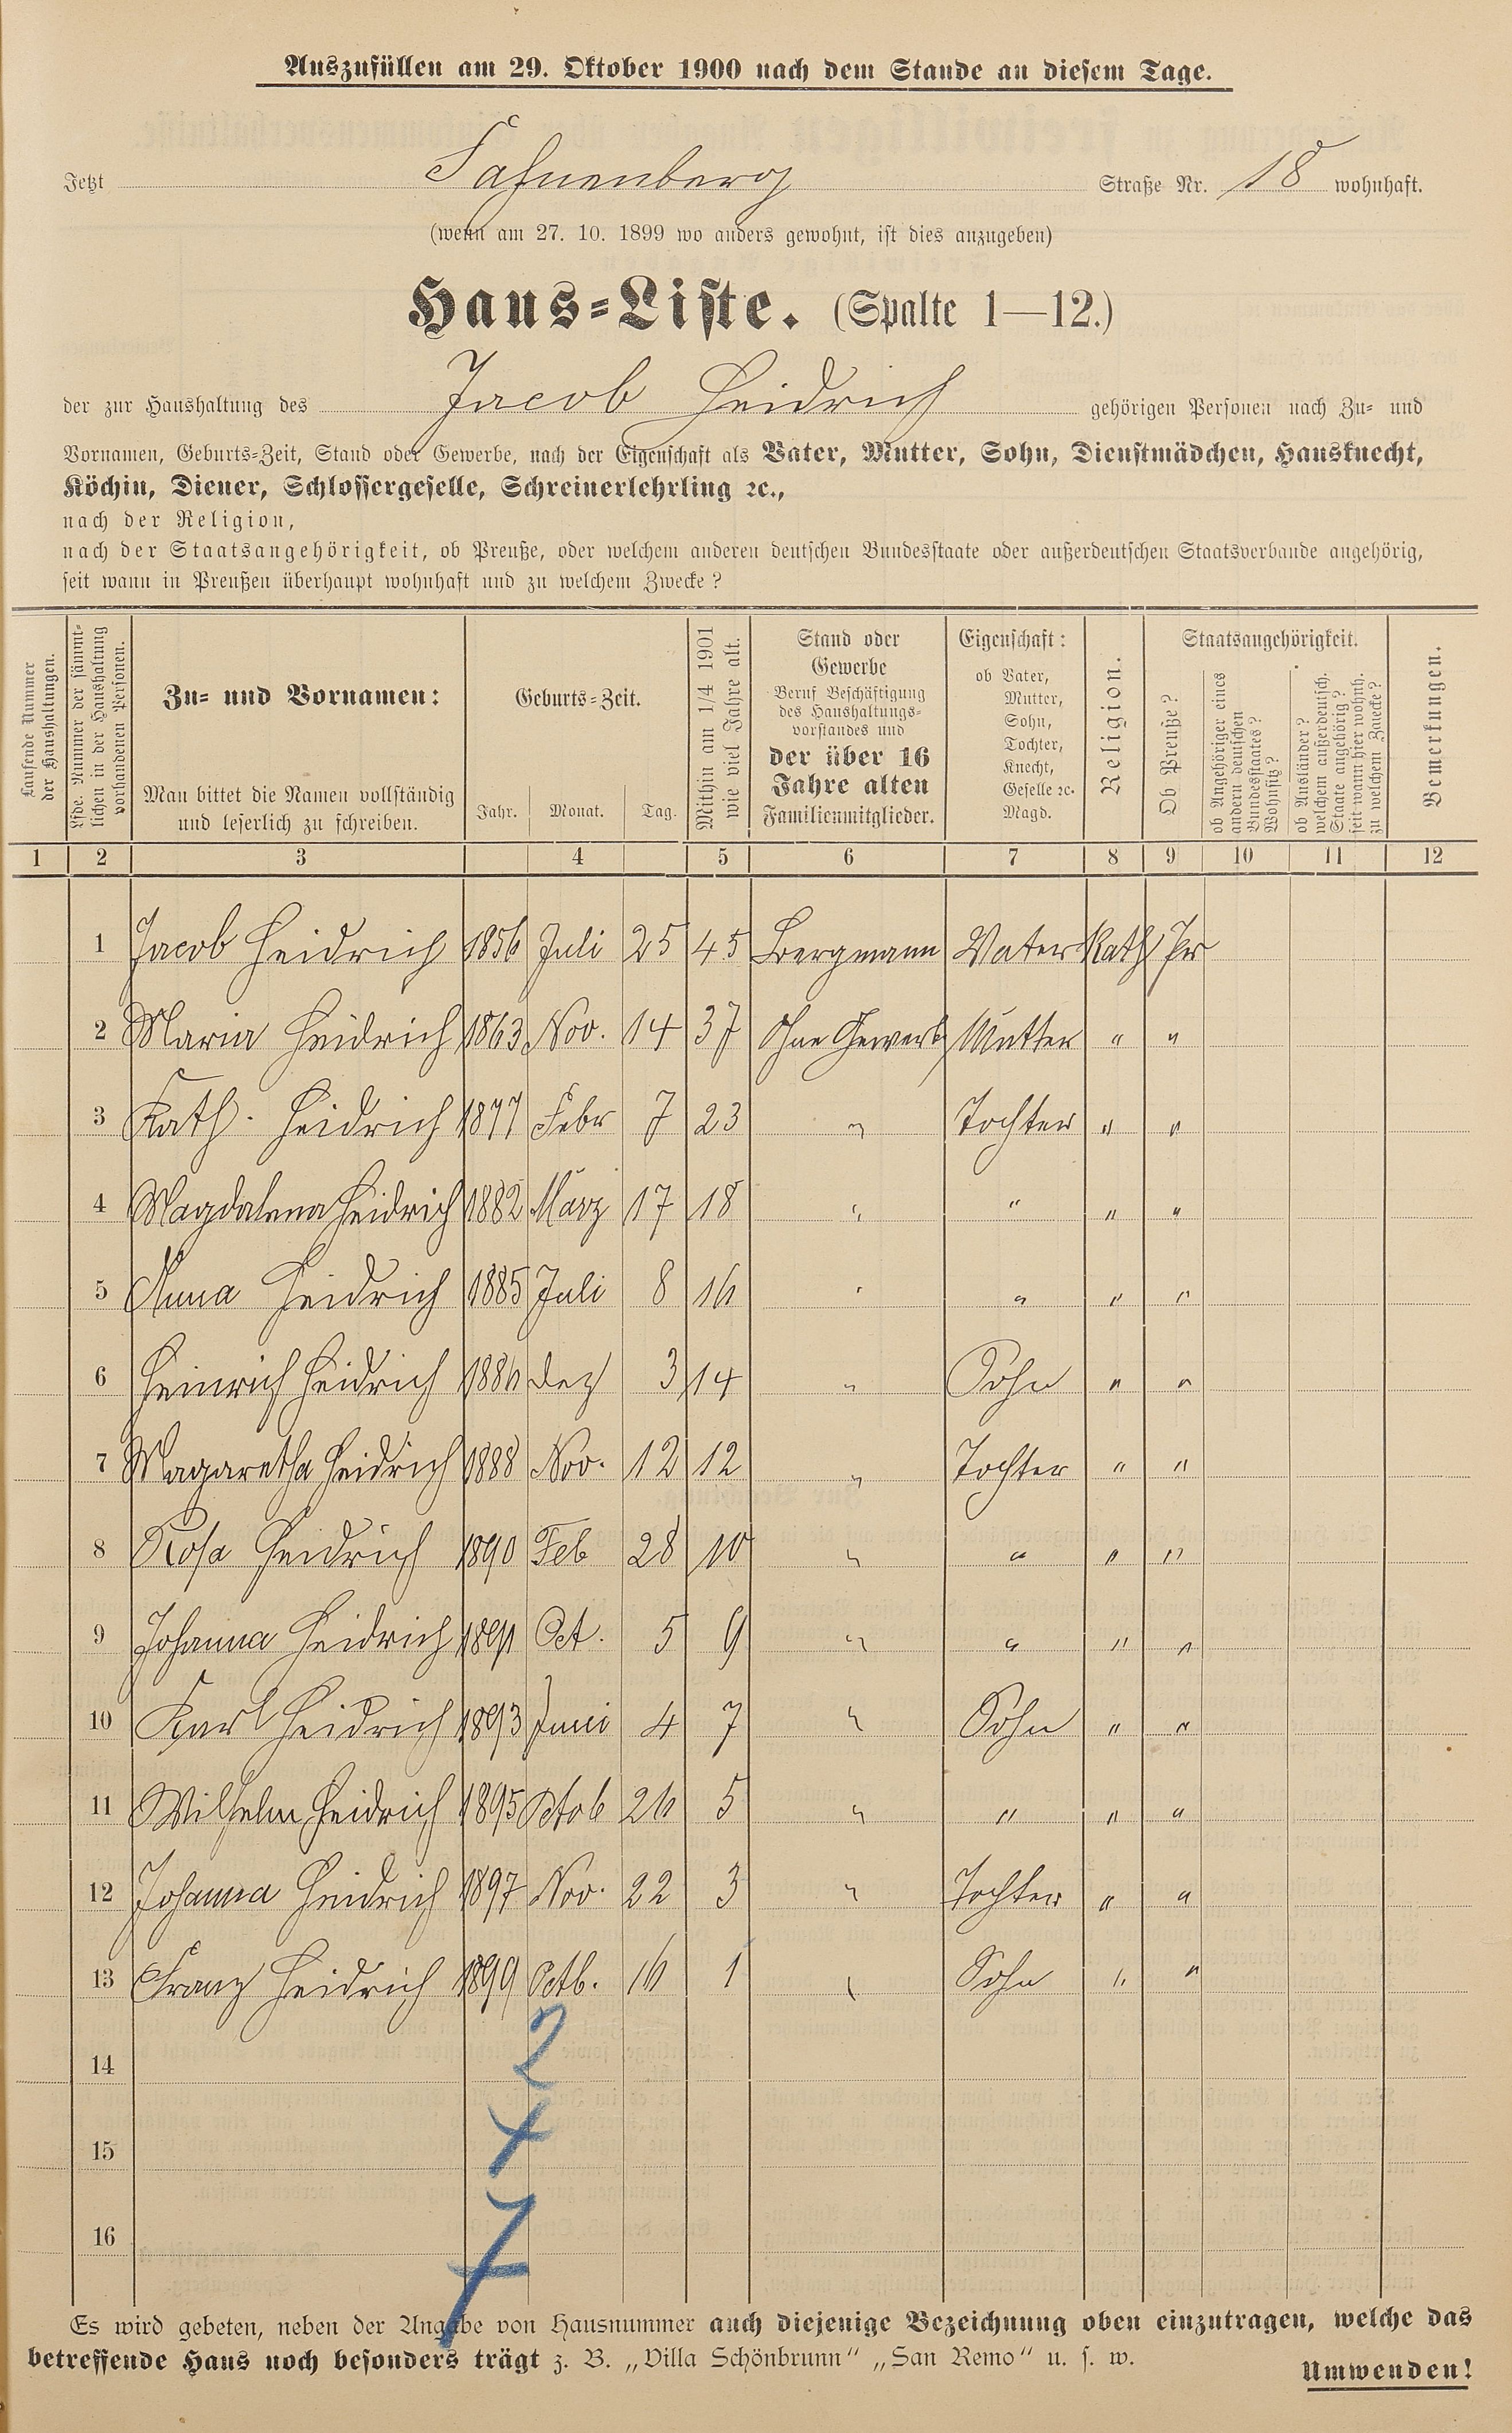 Auszufüllen am 29. Oktober 1900 nach dem Stande an diesem Tage.
Jetzt Fahnenberg Straße Nr. 18 wohnhaft.
(wenn am 27. 10. 1899 wo anders gewohnt, ist dies anzugeben)
Haus-Liste. (Spalte 1—12.)
der zur Haushaltung des Jacob Heidrich gehörigen Personen nach Zu- und
Vornamen, Geburts-Zeit, Stand oder Gewerbe, nach der Eigenschaft als Vater, Mutter, Sohn, Dienstmädchen, Hausknecht,
Köchin, Diener, Schlossergeselle, Schreinerlehrling ꝛc.,
nach der Religion,
nach der Staatsangehörigkeit, ob Preuße, oder welchem anderen deutschen Bundesstaate oder außerdeutschen Staatsverbande angehörig,
seit wann in Preußen überhaupt wohnhaft und zu welchem Zwecke?
Laufende Nummer
der Haushaltungen.
Lfde. Nummer der sämmt-
lichen in der Haushaltung
vorhandenen Personen.
Zu- und Vornamen:
Man bittet die Namen vollständig
und leserlich zu schreiben.
Geburts-Zeit.
Jahr. Monat. Tag.
Mithin am 1/4 1901
wie viel Jahre alt.
Stand oder
Gewerbe
Beruf Beschäftigung
des Haushaltungs-
vorstandes und
der über 16
Jahre alten
Familienmitglieder.
Eigenschaft:
ob Vater,
Mutter,
Sohn,
Tochter,
Knecht,
Geselle ꝛc.
Magd.
Religion.
Staatsangehörigkeit.
Ob Preuße?
ob Angehöriger eines
andern deutschen
Bundesstaates?
Wohnsitz?
ob Ausländer?
welchem außerdeutsch.
Staate angehörig?
seit wann hier wohnh.
zu welchem Zwecke?
Bemerkungen.
1 2 3 4 5 6 7 8 9 10 11 12
1 Jacob Heidrich 1856 Juli 25 45 Bergmann Vater Kath Pr
2 Maria Heidrich 1863 Nov. 14 37 Ohne Gewerb Mutter " "
3 Kath. Heidrich 1877 Febr 7 23 " Tochter " "
4 Magdalena Heidrich 1882 März 17 18 " " " "
5 Anna Heidrich 1885 Juli 8 16 " " " "
6 Heinrich Heidrich 1886 Dez 3 14 " Sohn " "
7 Magaretha Heidrich 1888 Nov. 12 12 " Tochter " "
8 Rosa Heidrich 1890 Feb 28 10 " " " "
9 Johanna Heidrich 1891 Oct. 5 9 " " " "
10 Karl Heidrich 1893 Juni 4 7 " Sohn " "
11 Wilhelm Heidrich 1895 Oktob 26 5 " " " "
12 Johanna Heidrich 1897 Nov. 22 3 " Tochter " "
13 Franz Heidrich 1899 Octb. 16 1 " Sohn " "
2
14
+
15
7
16
Es wird gebeten, neben der Angabe von Hausnummer auch diejenige Bezeichnung oben einzutragen, welche das
betreffende Haus noch besonders trägt z. B. „Villa Schönbrunn“ „San Remo“ u. s. w.
Umwenden!